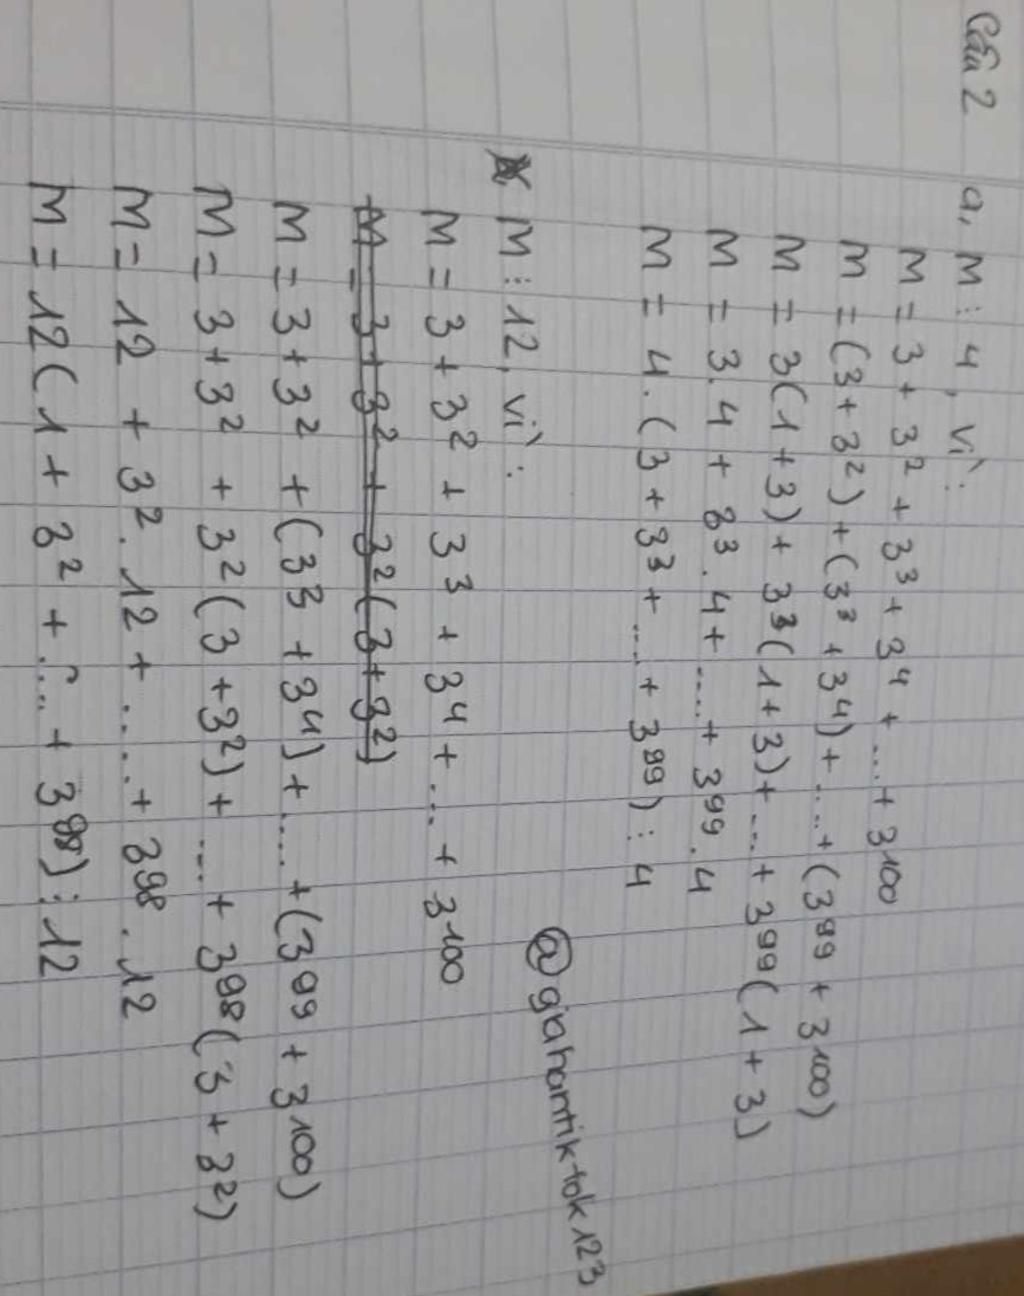 Câu 2
a, M ⋮ 4, vì:
M = 3 + 3² + 3³ + 3⁴ + .... + 3¹⁰⁰
M = (3 + 3²) + (3³ + 3⁴) + ..... + (3⁹⁹ + 3¹⁰⁰)
M = 3(1 + 3) + 3³(1 + 3) + .... + 3⁹⁹(1 + 3)
M = 3.4 + 3³.4 + ..... + 3⁹⁹.4
M = 4.(3 + 3³ + .... + 3⁹⁹) ⋮ 4
@giahantiktok123
M ⋮ 12, vì:
M = 3 + 3² + 3³ + 3⁴ + .... + 3¹⁰⁰
M = 3 + 3² + 3²(3 + 3²)
M = 3 + 3² + (3³ + 3⁴) + ..... + (3⁹⁹ + 3¹⁰⁰)
M = 3 + 3² + 3²(3 + 3²) + .... + 3⁹⁸(3 + 3²)
M = 12 + 3².12 + ..... + 3⁹⁸.12
M = 12(1 + 3² + ..... + 3⁹⁸) ⋮ 12